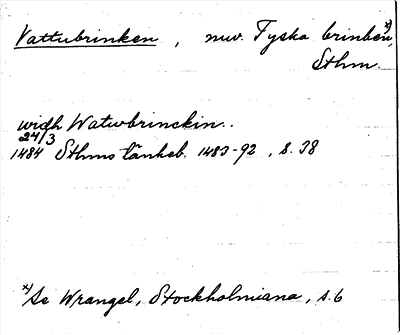 Vattubrinken, nuv. Tyska brinken,x)
Sthm.
widh Watwbrinckin..
24/3
1484 Sthms tänkeb. 1483-92, s. 38
x) Se Wrangel, Stockholmiana, s. 6